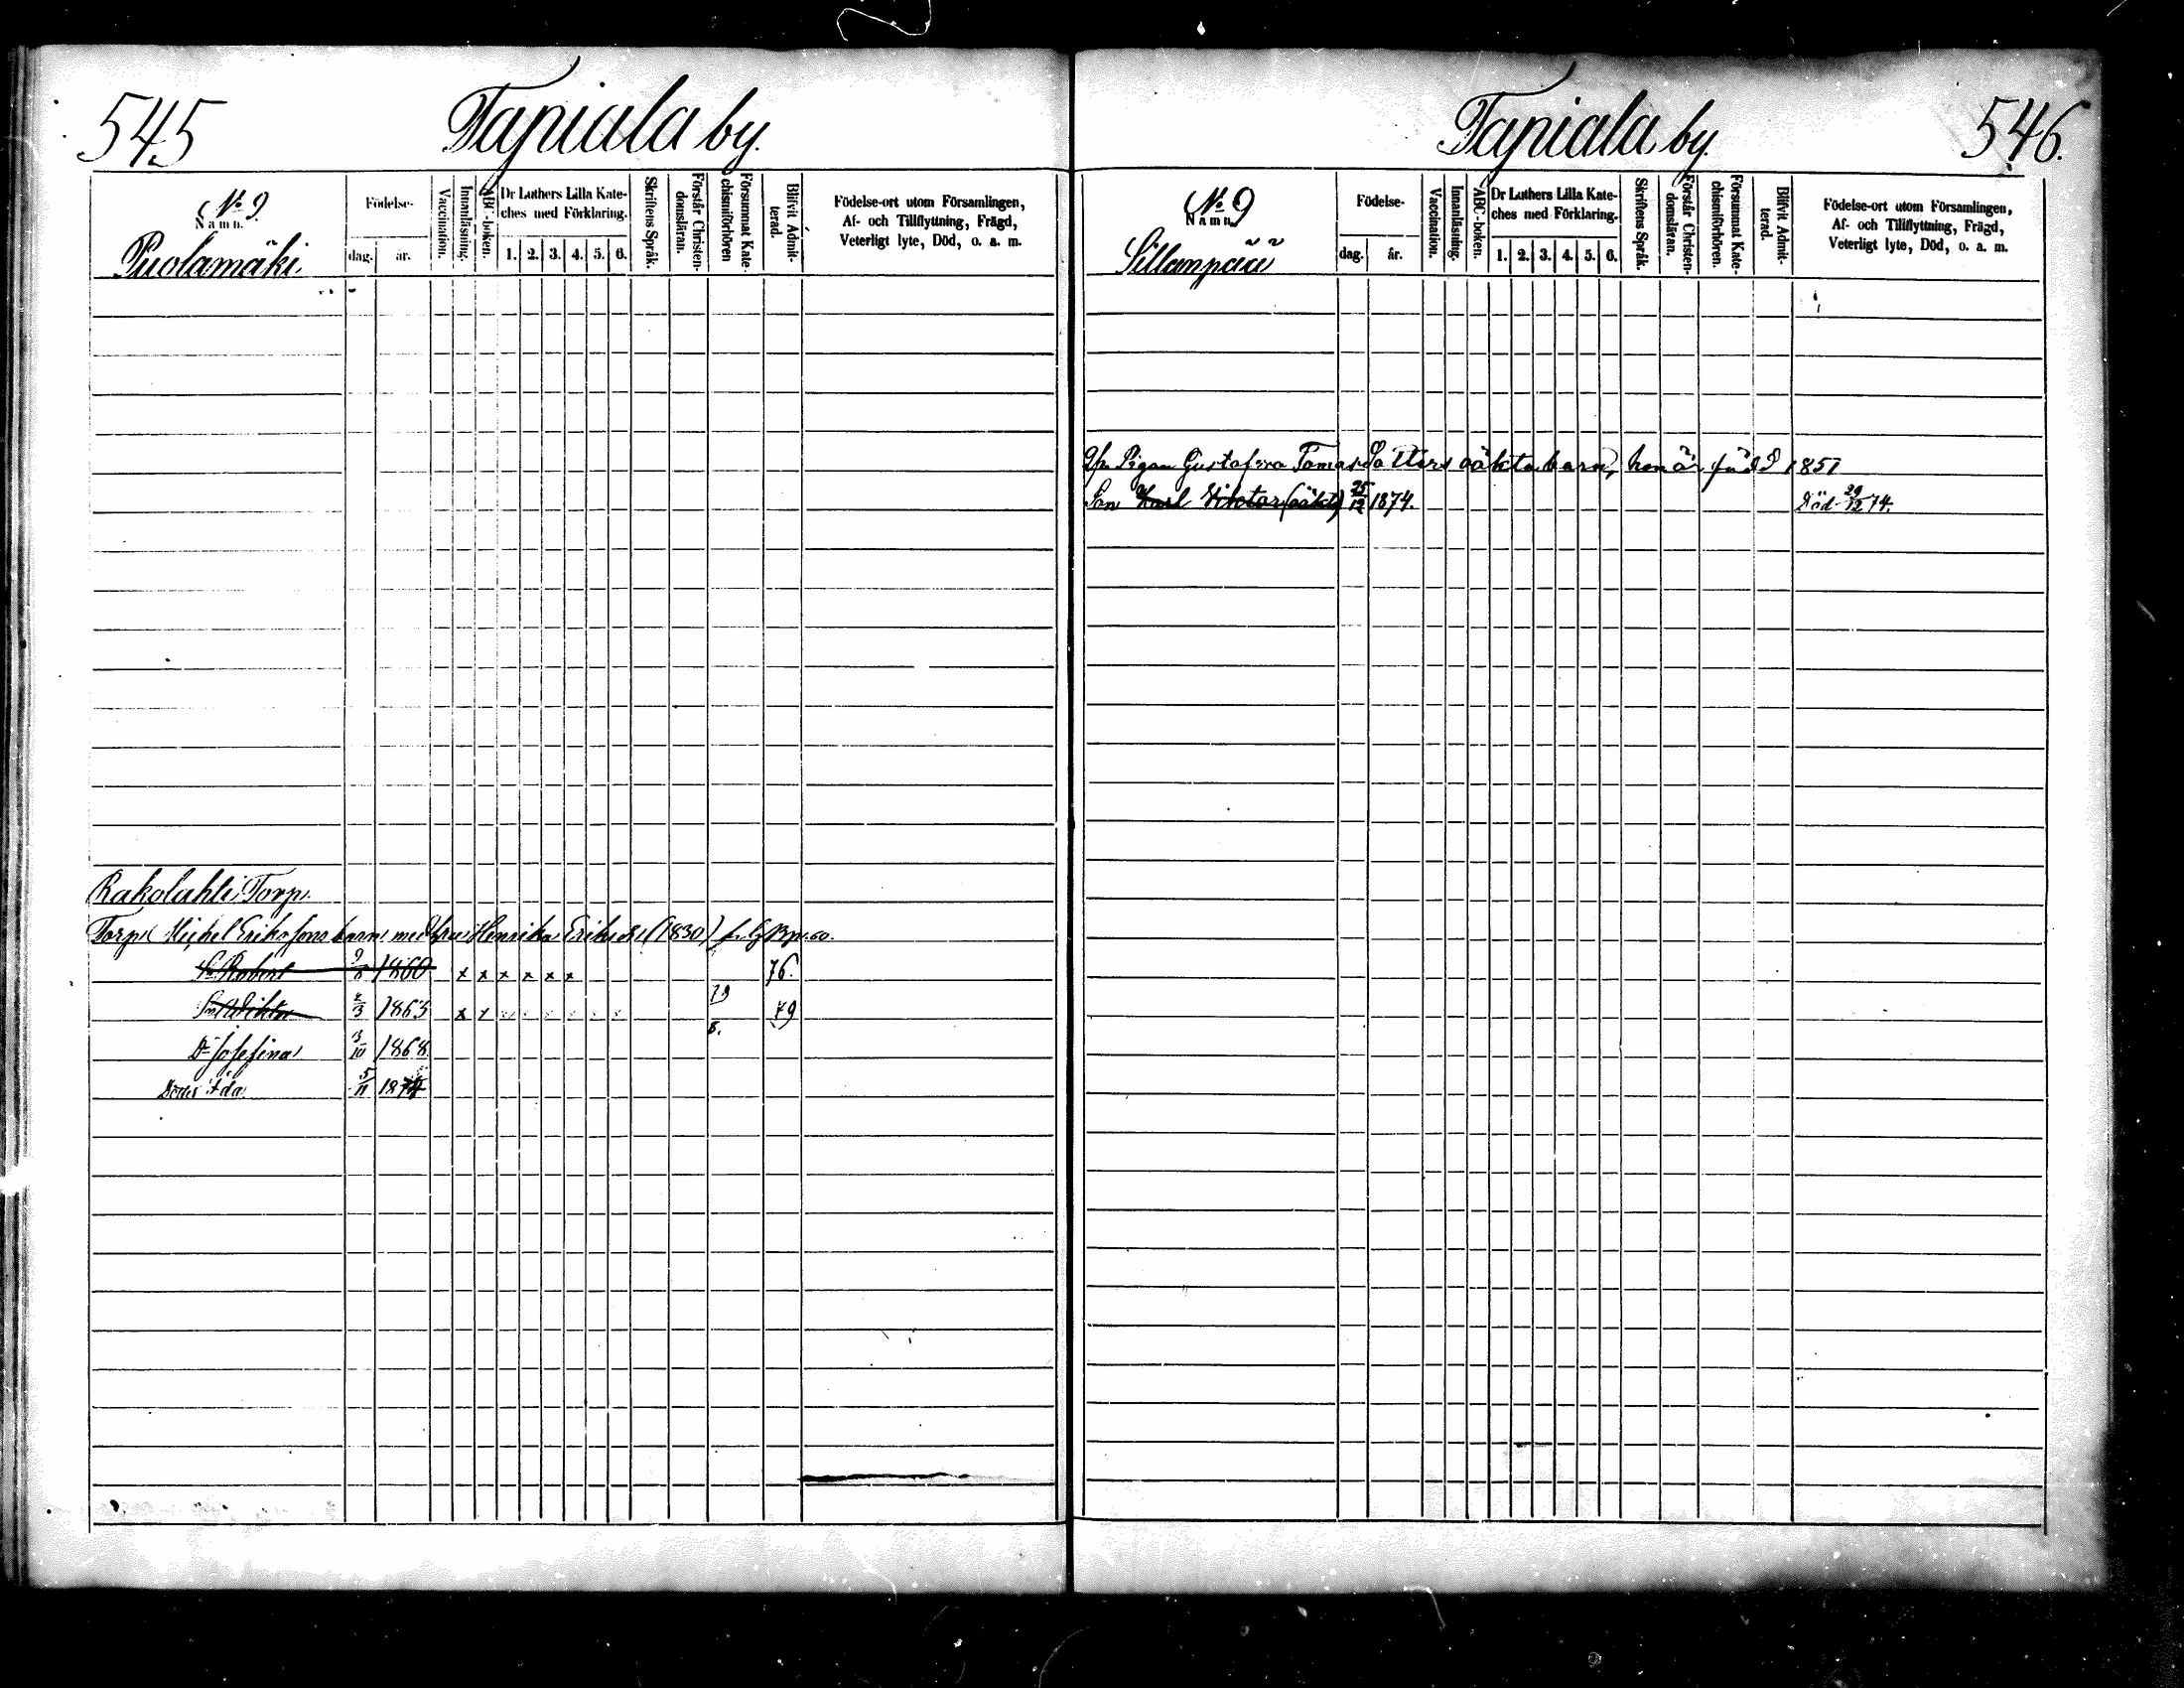 545 Tapiala by.
No 9.
Namn.
Puolamäki.
Födelse-
dag. år.
Vaccination.
Innanläsning.
ABC-boken.
Dr Luthers Lilla Kate-
ches med Förklaring.
1. 2. 3. 4. 5. 6.
Skriftens Språk.
Förstår Christen-
domsläran.
Försummat Kate-
chismiförhören
Blifvit Admit-
terad.
Födelse-ort utom Församlingen,
Af- och Tillflyttning, Frägd,
Veterligt lyte, Död, o. a. m.
Rakolahti Torp.
Torp. Michel Erikssons barn med Henrika Eriksd. (1830)
Sn Robert 9/8 1860 x x x x x x 76.
Sn Wiktor 2/3 1863 x x 79 8. 79
Dr Josefina 13/10 1868
Dotter Ida 5/11 1874
Tapiala by. 546.
No 9
Namn.
Sillanpää
Födelse-
dag. år.
Vaccination.
Innanläsning.
ABC-boken.
Dr Luthers Lilla Kate-
ches med Förklaring.
1. 2. 3. 4. 5. 6.
Skriftens Språk.
Förstår Christen-
domsläran.
Försummat Kate-
chismiförhören.
Blifvit Admit-
terad.
Födelse-ort utom Församlingen,
Af- och Tillflyttning, Frägd,
Veterligt lyte, Död, o. a. m.
Pigan Gustafva Tomasdotters oäkta barn, hon är född 1851
Son Karl Viktor (oäkta) 25/12 1874. Död 29/12 74.